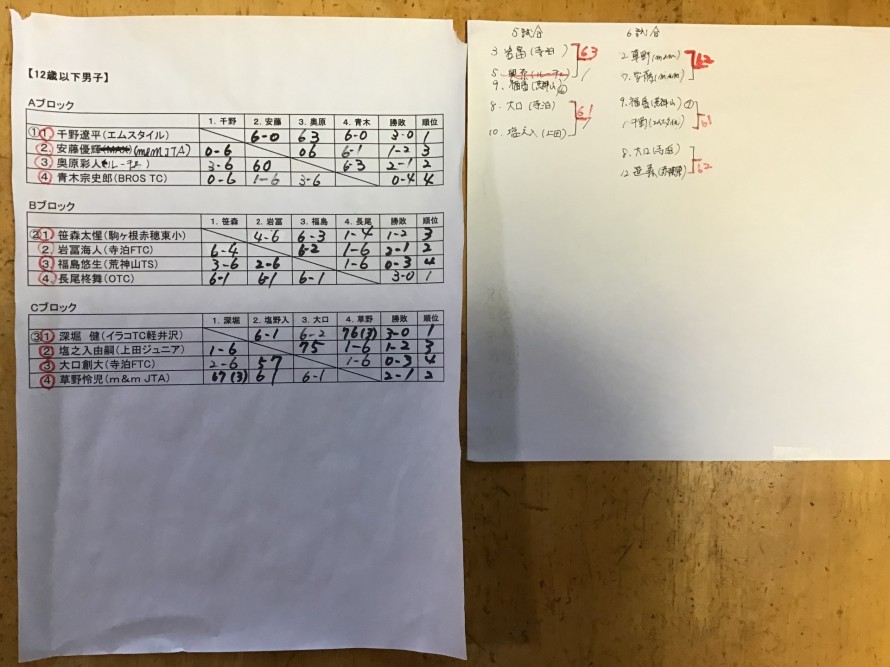 【12歳以下男子】
Aブロック
1. 千野 2. 安藤 3. 奥原 4. 青木 勝敗 順位
① ① 千野遼平(エムスタイル) 6-0 63 6-0 3-0 1
② 安藤優輝 (m&m JTA) 0-6 06 6-1 1-2 3
③ 奥原彩人 3-6 60 6-3 2-1 2
④ 青木宗史郎(BROS TC) 0-6 1-6 3-6 0-4 4
Bブロック
1. 笹森 2. 岩冨 3. 福島 4. 長尾 勝敗 順位
② ① 笹森太惺(駒ヶ根赤穂東小) 4-6 6-3 1-4 1-2 3
② 岩冨海人(寺泊FTC) 6-4 6-2 1-6 2-1 2
③ 福島悠生(荒神山TS) 3-6 2-6 1-6 0-3 4
④ 長尾柊舞(OTC) 6-1 61 6-1 3-0 1
Cブロック
1. 深堀 2. 塩野入 3. 大口 4. 草野 勝敗 順位
③ ① 深堀 健(イラコTC軽井沢) 6-1 6-2 76(3) 3-0 1
② 塩之入由嗣(上田ジュニア) 1-6 75 1-6 1-2 3
③ 大口創大(寺泊FTC) 2-6 57 1-6 0-3 4
④ 草野怜児(m&m JTA) 67(3) 61 6-1 2-1 2
5試合
3. 岩冨(寺泊) 63
9. 福島(荒神山)
8. 大口(寺泊) 61
10. 塩之入(上田)
6試合
2. 草野(m&m) 62
7. 安藤(m&m)
9. 福島(荒神山)
1. 千野(エムスタイル) 61
8. 大口(寺泊)
12. 笹森 62